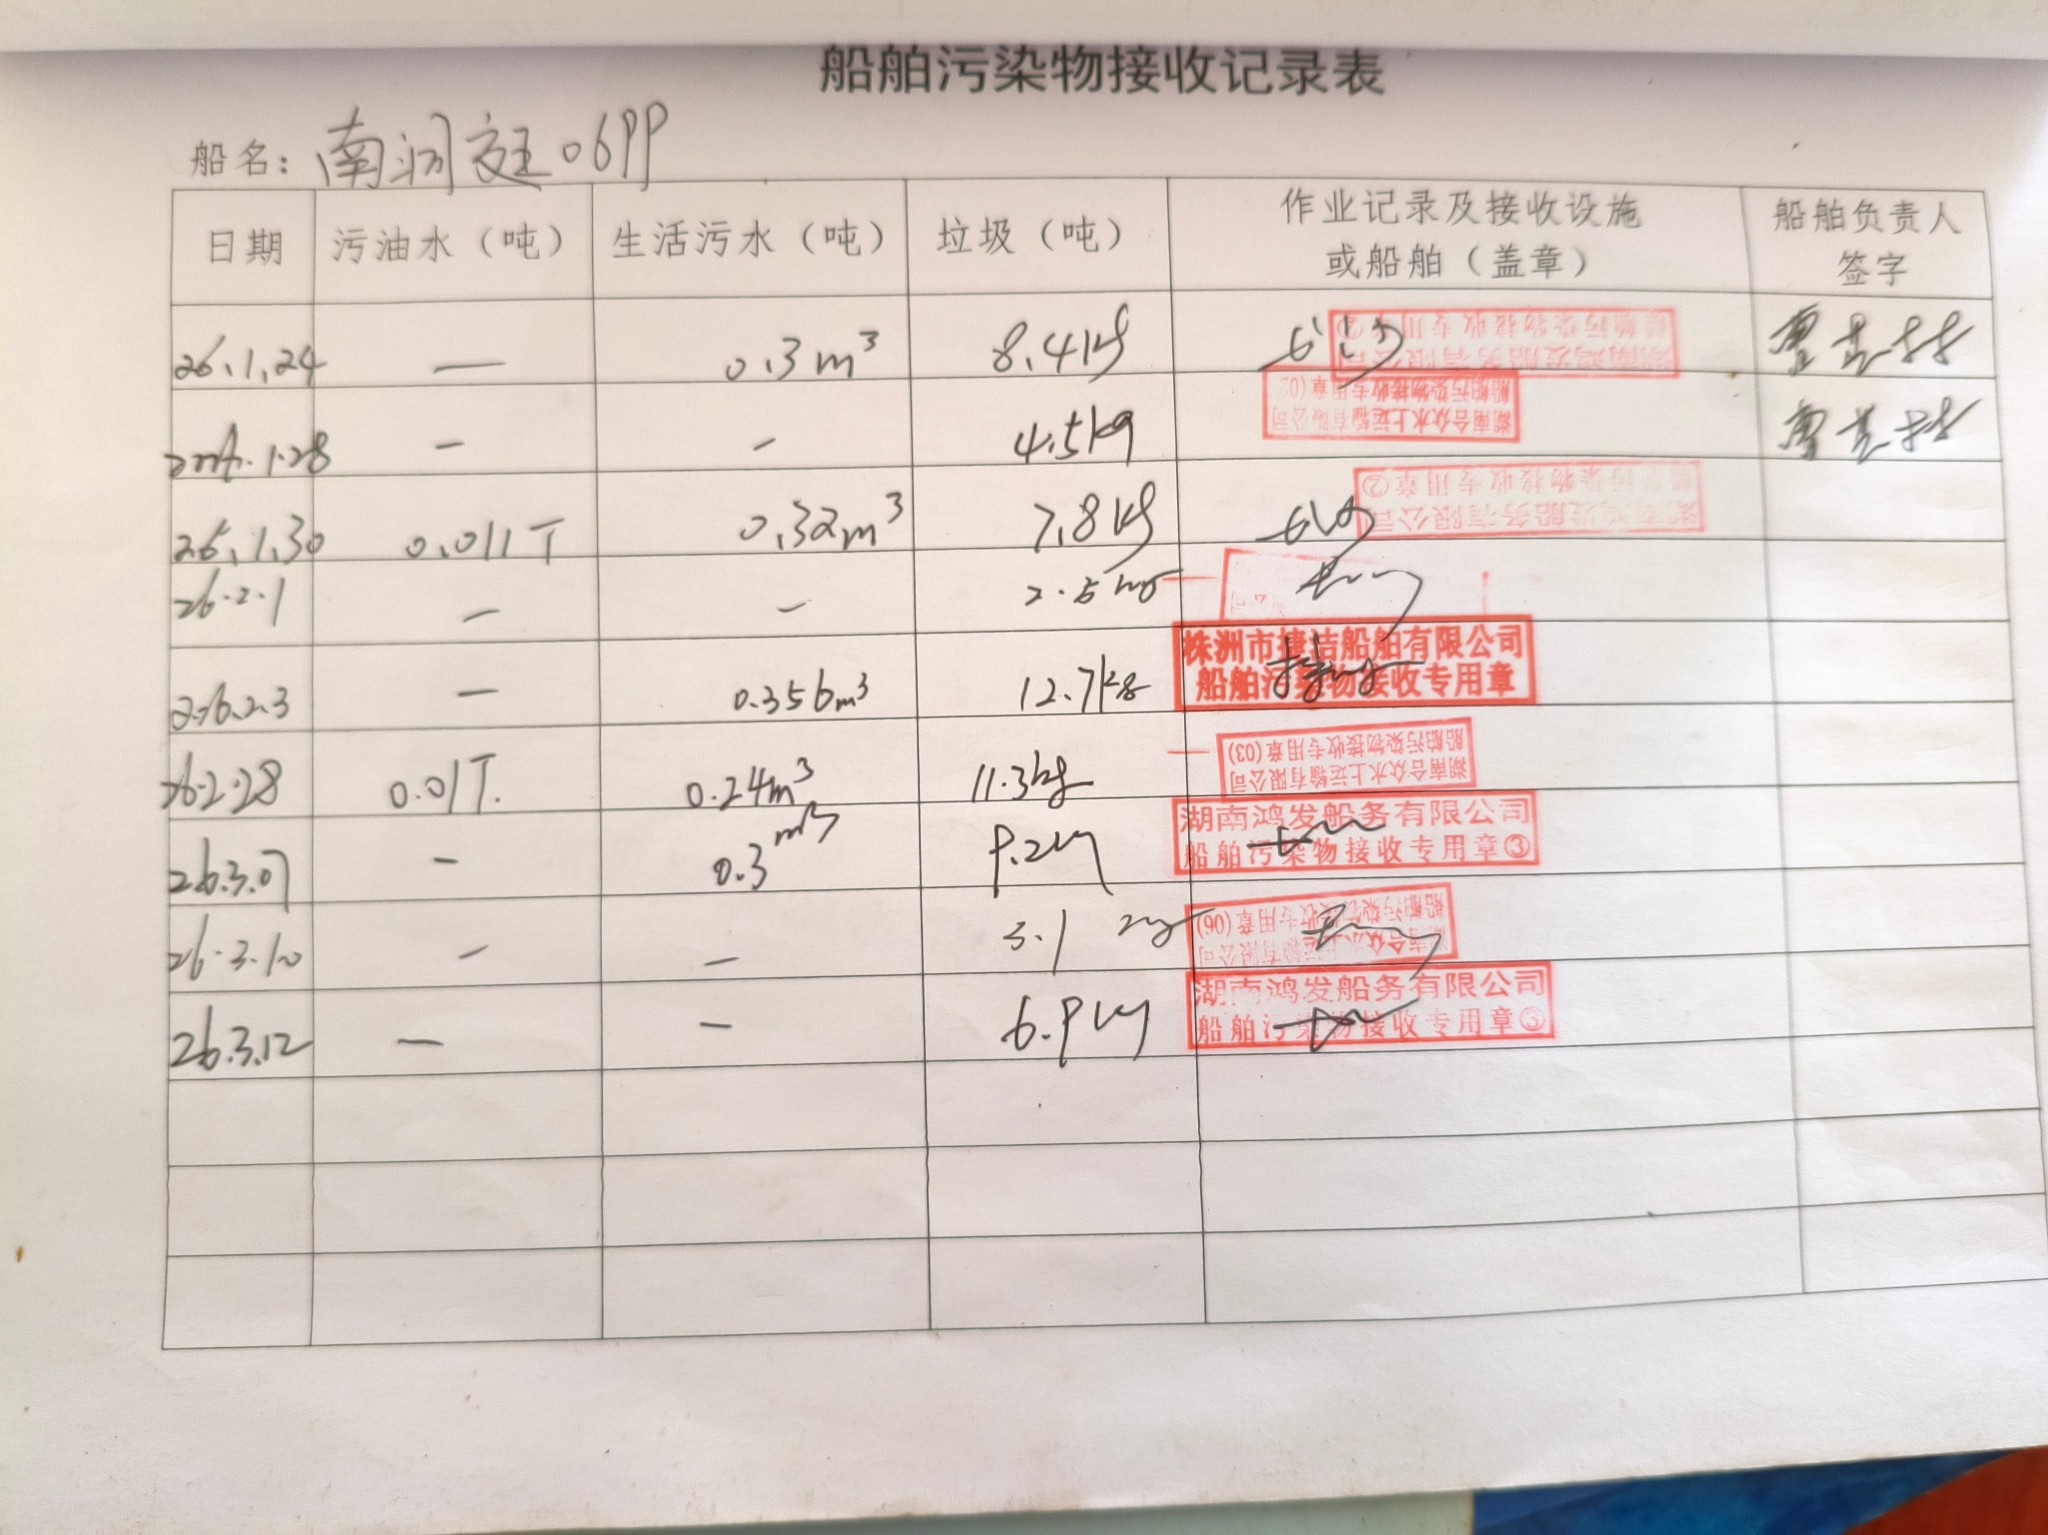 船舶污染物接收记录表
船名：南洞庭0699
日期 污油水（吨） 生活污水（吨） 垃圾（吨） 作业记录及接收设施或船舶（盖章） 船舶负责人签字
26.1.24 — 0.3m³ 8.4kg 湖南鸿发船务有限公司 船舶污染物接收专用章②
1.28 — — 4.5kg 湖南合众水上运输有限公司 船舶污染物接收专用章
26.1.30 0.011T 0.32m³ 7.8kg 湖南鸿发船务有限公司 船舶污染物接收专用章②
26.2.1 — — 2.5kg
26.2.3 — 0.356m³ 12.7kg 株洲市捷洁船舶有限公司 船舶污染物接收专用章
26.2.28 0.01T. 0.24m³ 11.3kg 湖南合众水上运输有限公司 船舶污染物接收专用章(03)
26.3.07 — 0.3m³ 9.2kg 湖南鸿发船务有限公司 船舶污染物接收专用章③
26.3.10 — — 3.1kg 湖南合众水上运输有限公司 船舶污染物接收专用章(06)
26.3.12 — — 6.9kg 湖南鸿发船务有限公司 船舶污染物接收专用章③